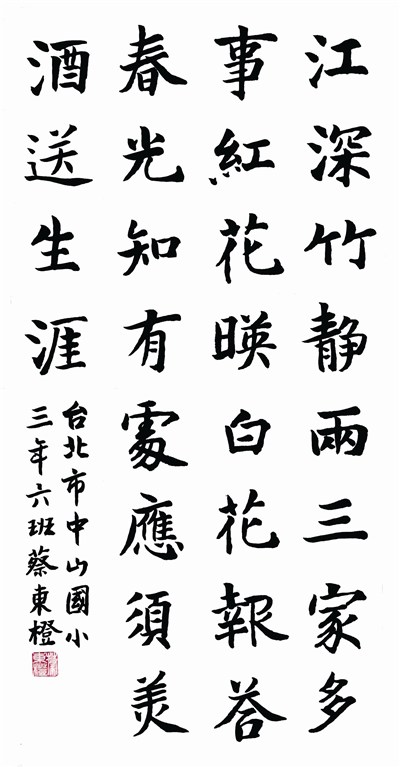 江深竹靜兩三家多
事紅花暎白花報荅
春光知有處應須美
酒送生涯
台北市中山國小
三年六班蔡東橙